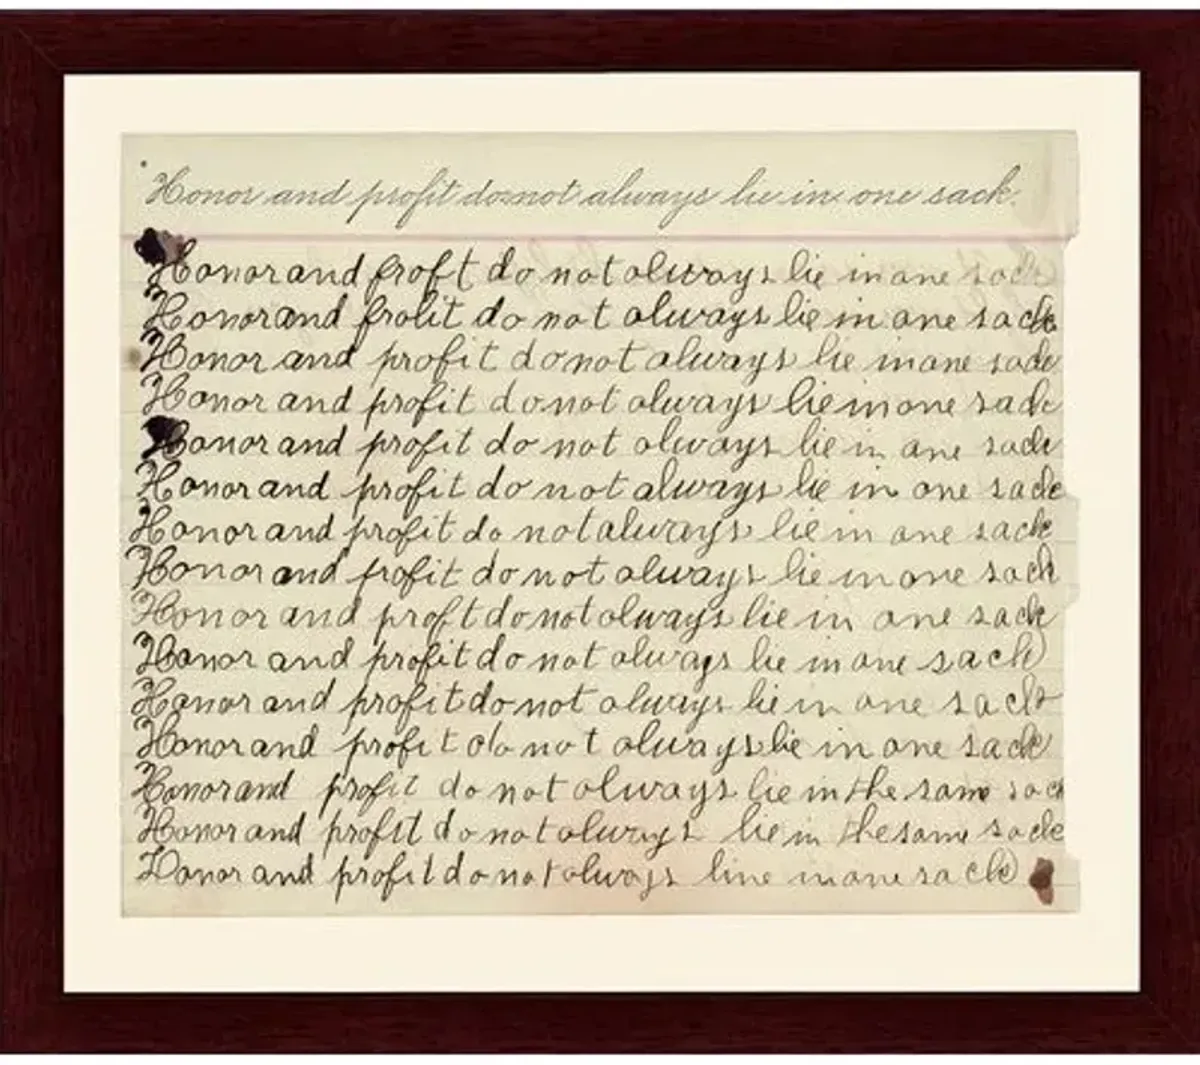 Honor and profit do not always lie in one sack.
Honor and proft do not always lie in one sack
Honor and frolit do not always lie in one sack
Honor and profit do not always lie in one sack
Honor and profit do not always lie in one sack
Honor and profit do not always lie in one sack
Honor and profit do not always lie in one sack
Honor and profit do not always lie in one sack
Honor and profit do not always lie in one sack
Honor and proft do not always lie in one sack
Honor and profit do not always lie in one sack
Honor and profit do not always lie in one sack
Honor and profit do not always lie in one sack
Honor and profit do not always lie in the same sack
Honor and profit do not always lie in the same sack
Honor and profit do not always line in one sack